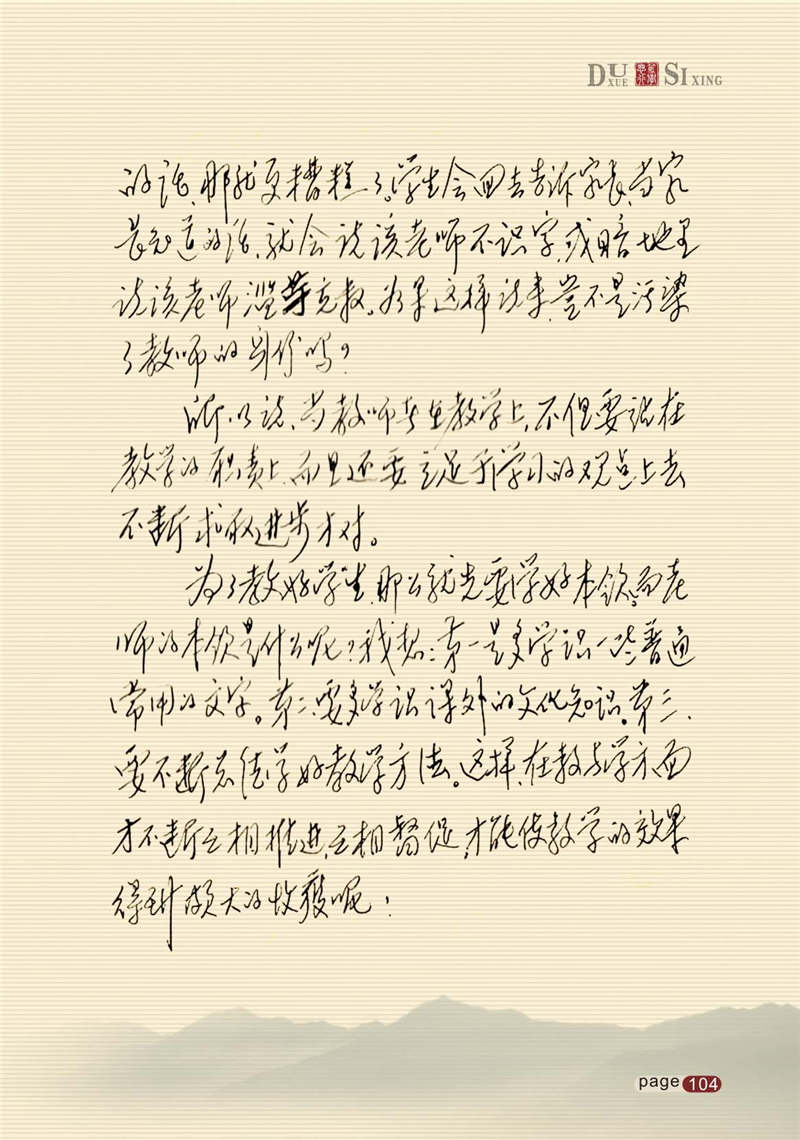 DUXUE SIXING
的话,那就更糟糕了。学生会回去告诉家长,当家
长知道的话,就会说该老师不识字,或暗地里
说该老师滥竽充数。如果这样说来,岂不是污染
了教师的身份吗?
所以说,当教师在教学上,不但要站在
教学的职责上,而且还要立足于学习的观点上去
不断求取进步才对。
为了教好学生,那么就先要学好本领。而老
师的本领是什么呢?我想:第一是多学识一些普通
常用的文字。第二、要多学识课外的文化知识。第三、
要不断学好教学方法。这样,在教与学方面
才不断互相推进,互相督促,才能使教学的效果
得到颇大的收获呢!
page 104